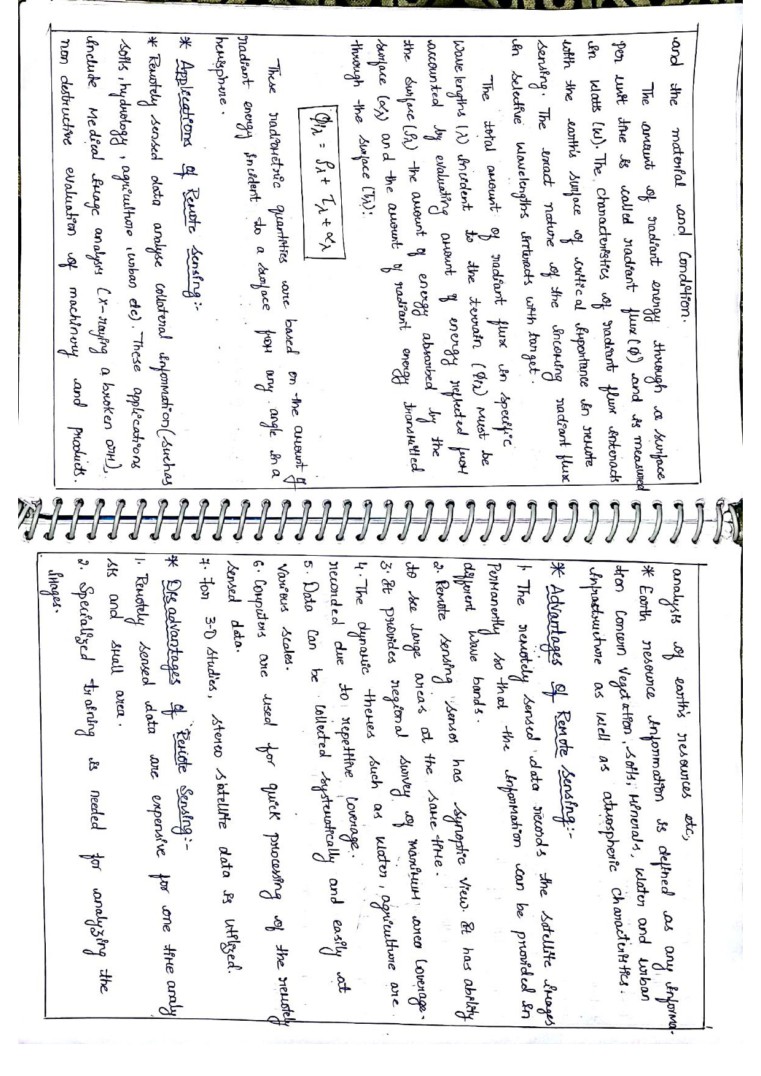 and the material and condition.
The amount of radiant energy through a surface
per unit time is called radiant flux (φ) and is measured
in watts (w). The characteristics of radiant flux interacts
with the earth's surface of critical importance in remote
sensing. The exact nature of the incoming radiant flux
in selective wavelengths interacts with target.
The total amount of radiant flux in specific
wavelengths (λ) incident to the terrain (φiλ) must be
accounted by evaluating amount of energy reflected from
the surface (ρλ) the amount of energy absorbed by the
surface (αλ) and the amount of radiant energy transmitted
through the surface (τλ):
φiλ = ρλ + τλ + αλ
These radiometric quantities are based on the amount of
radiant energy incident to a surface from any angle in a
hemisphere.
* Applications of Remote Sensing:-
* Remotely sensed data analyse collateral information (such as
soils, hydrology, agriculture, urban etc). These applications
include Medical image analysis (x-raying a broken arm),
non destructive evaluation of machinery and products.
analysis of earth's resources etc,
* Earth resource information is defined as any informa-
tion concern vegetation, soils, minerals, water and urban
infrastructure as well as atmospheric characteristics.
* Advantages of Remote Sensing:-
1. The remotely sensed data records the satellite images
permanently so that the information can be provided in
different wave bands.
2. Remote sensing sensor has synoptic view. It has ability
to see large areas at the same time.
3. It provides regional survey of maximum area coverage.
4. The dynamic themes such as water, agriculture are
recorded due to repetitive coverage.
5. Data can be collected systematically and easily at
various scales.
6. Computers are used for quick processing of the remotely
sensed data.
7. For 3-D studies, stereo satellite data is utilized.
* Disadvantages of Remote Sensing:-
1. Remotely sensed data are expensive for one time analy
sis and small area.
2. Specialized training is needed for analyzing the
images.